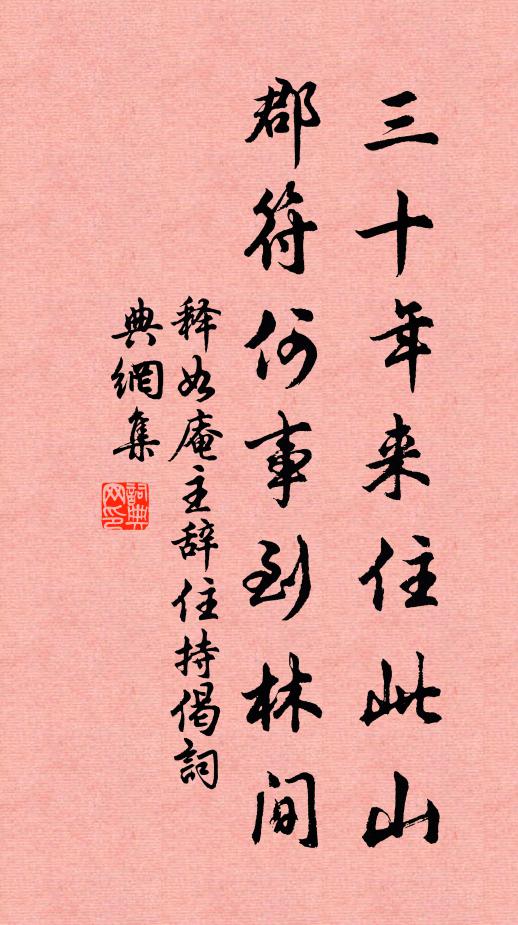 三十年来住此山
郡符何事到林间
释如庵主辞住持偈詞
典網集
詞典
网印